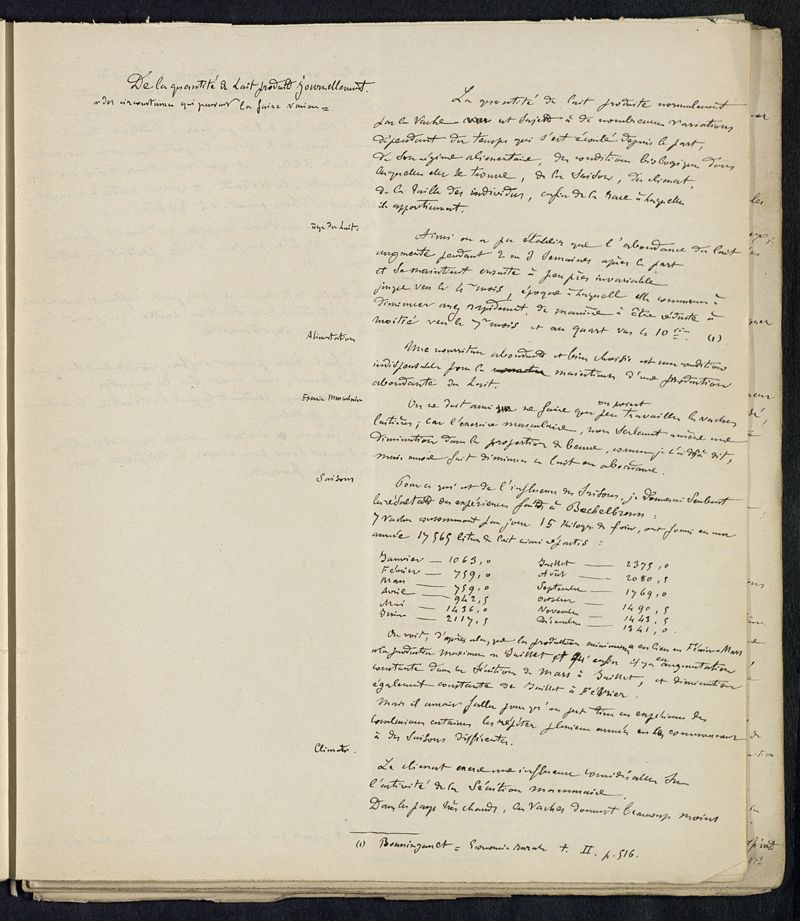 De la quantité de Lait produite journellement.
& des circonstances qui peuvent la faire varier =
La quantité de lait produite normalement
par la Vache est sujette à de nombreuses variations
dépendant du temps qui s'est écoulé depuis le part,
de son régime alimentaire, des conditions biologiques dans
lesquelles elle se trouve, de la Saison, du climat,
de la taille des individus, enfin de la Race à laquelle
ils appartiennent.
Age du Lait.
Ainsi on a pu établir que l'abondance du lait
augmente pendant 2 ou 3 Semaines après le part
et se maintient ensuite à peu près invariable
jusque vers le 4e mois, époque à laquelle elle commence à
diminuer assez rapidement, de manière à être réduite à
moitié vers le 7e mois et au quart vers le 10e. (1)
Alimentation
Une nourriture abondante et bien choisie est une condition
indispensable pour le maintien d'une production
abondante du Lait.
Exercice Musculaire
On ne doit ainsi ne faire que peu ou point travailler les vaches
laitières; car l'exercice musculaire, non seulement amène une
diminution dans la proportion de beurre, comme je l'ai déjà dit,
mais encore fait diminuer le lait en abondance.
Saisons
Pour ce qui est de l'influence des Saisons, je donnerai seulement
les résultats des expériences faites à Bechelbronn:
7 vaches consommant par jour 15 kilogs de foin, ont fourni en une
année 17565 litres de lait ainsi répartis:
Janvier — 1063,0 Juillet — 2375,0
Février — 759,0 Août — 2080,5
Mars — 759,0 Septembre — 1769,0
Avril — 942,5 Octobre — 1490,5
Mai — 1436,0 Novembre — 1443,5
Juin — 2117,5 Décembre — 1341,0.
On voit, d'après cela, que la production minimum a eu lieu en Février & Mars
& la production maximum en Juillet et qu'enfin il y a eu augmentation
constante dans la Sécrétion de Mars à Juillet, et diminution
également constante de Juillet à Février.
Mais il aurait fallu pour qu'on put tirer de ces expériences des
conclusions certaines les répéter plusieurs années en les commençant
à des Saisons différentes.
Climats.
Le climat exerce une influence considérable sur
l'activité de la Sécrétion mammaire.
Dans les pays très chauds, les Vaches donnent beaucoup moins
(1) Boussingault = Economie rurale t. II. p. 516.